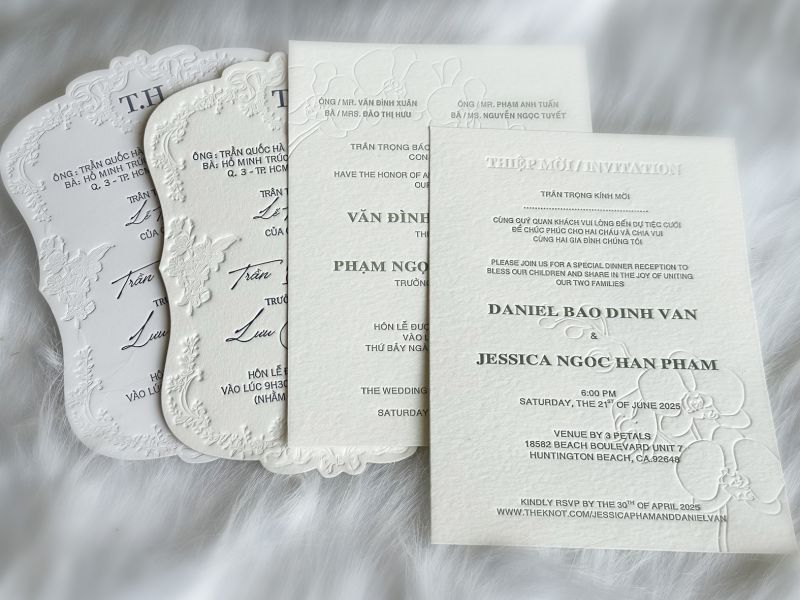 T.H
ÔNG : TRẦN QUỐC HÀ
BÀ: HỒ MINH TRÚC
Q. 3 - TP. HCM
TRÂN
CỦA
Trần
TRƯỞ
Lưu
HÔ
VÀO LÚC
T
ÔNG : TRẦN QUỐC HÀ
BÀ: HỒ MINH TRÚC
Q. 3 - TP. HCM
TRÂN T
CỦA C
Trần
TRƯỞ
Lưu
HÔN LỄ Đ
VÀO LÚC 9H30
(NHẰM
ÔNG / MR. VĂN ĐÌNH XUÂN
BÀ / MRS. ĐÀO THỊ HƯU
ÔNG / MR. PHẠM ANH TUẤN
BÀ / MS. NGUYỄN NGỌC TUYẾT
TRÂN TRỌNG BÁO
CON
HAVE THE HONOR OF A
OUR
VĂN ĐÌNH
TH
PHẠM NGỌ
TRƯỞNG
HÔN LỄ ĐƯỢ
VÀO L
THỨ BẢY NGÀ
THE WEDDING
SATURDAY
THIỆP MỜI / INVITATION
TRÂN TRỌNG KÍNH MỜI
CÙNG QUÝ QUAN KHÁCH VUI LÒNG ĐẾN DỰ TIỆC CƯỚI
ĐỂ CHÚC PHÚC CHO HAI CHÁU VÀ CHIA VUI
CÙNG HAI GIA ĐÌNH CHÚNG TÔI
PLEASE JOIN US FOR A SPECIAL DINNER RECEPTION TO
BLESS OUR CHILDREN AND SHARE IN THE JOY OF UNITING
OUR TWO FAMILIES
DANIEL BAO DINH VAN
&
JESSICA NGOC HAN PHAM
6:00 PM
SATURDAY, THE 21ST OF JUNE 2025
VENUE BY 3 PETALS
18582 BEACH BOULEVARD UNIT 7
HUNTINGTON BEACH, CA.92648
KINDLY RSVP BY THE 30TH OF APRIL 2025
WWW.THEKNOT.COM/JESSICAPHAMANDDANIELVAN